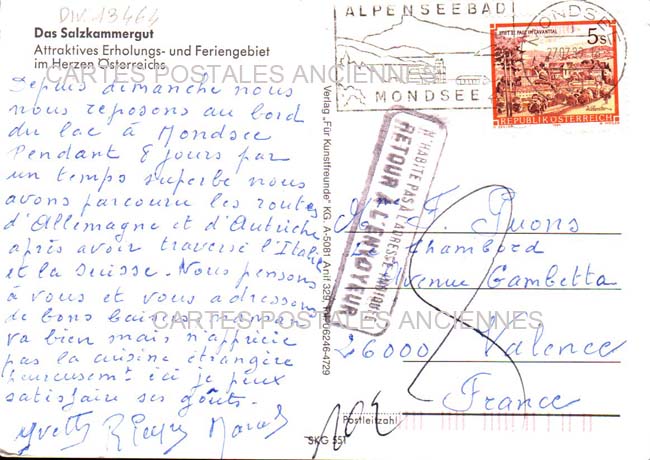 DIV. 13464
Das Salzkammergut
Attraktives Erholungs- und Feriengebiet
im Herzen Österreichs
CARTES POSTALES ANCIENNES
Depuis dimanche nous
nous reposons au bord
du lac à Mondsee
Pendant 8 jours par
un temps superbe nous
avons parcouru les routes
d'Allemagne et d'Autriche
après avoir traversé l'Italie
et la Suisse. Nous pensons
à vous et vous adressons
de bons baisers. maman
va bien mais n'apprécie
pas la cuisine étrangère
heureusement ici je peux
satisfaire ses goûts.
Yvette
Verlag „Für Kunstfreunde" KG, A-5081 Anif 329, 06246-4729
ALPENSEEBAD
MONDSEE
MONDSEE
5s
STIFT ST. PAUL IM LAVANTTAL
REPUBLIK ÖSTERREICH
N'HABITE PAS A L'ADRESSE INDIQUÉE
RETOUR A L'ENVOYEUR
F. Puons
Chambord
Avenue Gambetta
CARTES POSTALES ANCIENNES
26000 Valence
France
Postleitzahl
SKG 551